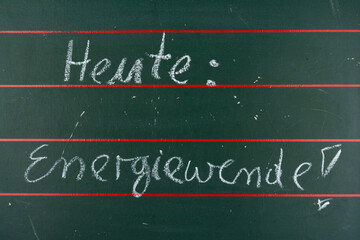 Heute:
Energiewende!